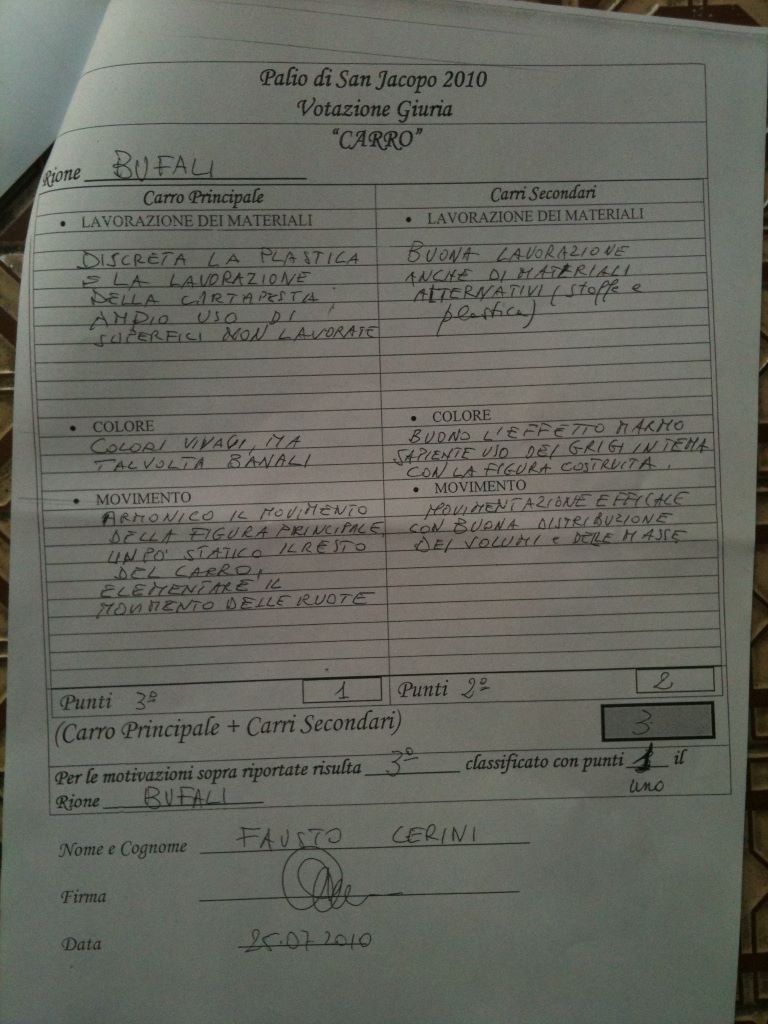 Palio di San Jacopo 2010
Votazione Giuria
“CARRO”
Rione BUFALI
Carro Principale
• LAVORAZIONE DEI MATERIALI
DISCRETA LA PLASTICA
E LA LAVORAZIONE
DELLA CARTAPESTA
AMPIO USO DI
SUPERFICI NON LAVORATE
• COLORE
COLORI VIVACI, MA
TALVOLTA BANALI
• MOVIMENTO
ARMONICO IL MOVIMENTO
DELLA FIGURA PRINCIPALE,
UN PO' STATICO IL RESTO
DEL CARRO,
ELEMENTARE IL
MOVIMENTO DELLE RUOTE
Punti 3º 1
Carri Secondari
• LAVORAZIONE DEI MATERIALI
BUONA LAVORAZIONE
ANCHE DI MATERIALI
ALTERNATIVI (stoffe e
plastica)
• COLORE
BUONO L'EFFETTO MARMO
SAPIENTE USO DEI GRIGI IN TEMA
CON LA FIGURA COSTRUITA.
• MOVIMENTO
MOVIMENTAZIONE EFFICACE
CON BUONA DISTRIBUZIONE
DEI VOLUMI e DELLE MASSE
Punti 2º 2
(Carro Principale + Carri Secondari) 3
Per le motivazioni sopra riportate risulta 3º classificato con punti 1 il
uno
Rione BUFALI
Nome e Cognome FAUSTO CERINI
Firma
Data 25.07.2010